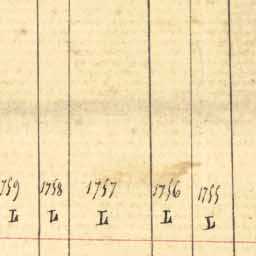 1759 1758 1757 1756 1755
L L L L L